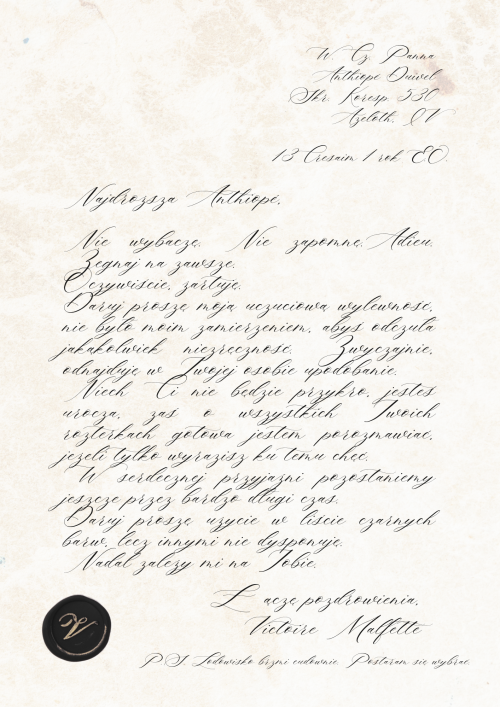 W. Cz. Panna
Anthiope Duivel
Skr. Koresp. 530
Azeloth, QV
13 Cresaim 1 rok EO.
Najdrozsza Anthiope,
Nie wybaczę. Nie zapomnę. Adieu.
Żegnaj na zawsze.
Oczywiście, żartuję.
Daruj proszę moją uczuciową wylewność,
nie było moim zamierzeniem, abyś odczuła
jakąkolwiek niezręczność. Zwyczajnie,
odnajduję w Twojej osobie upodobanie.
Niech Ci nie będzie przykro, jesteś
urocza, zaś o wszystkich Twoich
rozterkach gotowa jestem porozmawiać,
jeżeli tylko wyrazisz ku temu chęć.
W serdecznej przyjaźni pozostaniemy
jeszcze przez bardzo długi czas.
Daruj proszę użycie w liście czarnych
barw, lecz innymi nie dysponuję.
Nadal zależy mi na Tobie.
Łączę pozdrowienia,
Victoire Malfette
V
P.S. Lodowisko brzmi cudownie. Postaram się wybrać.